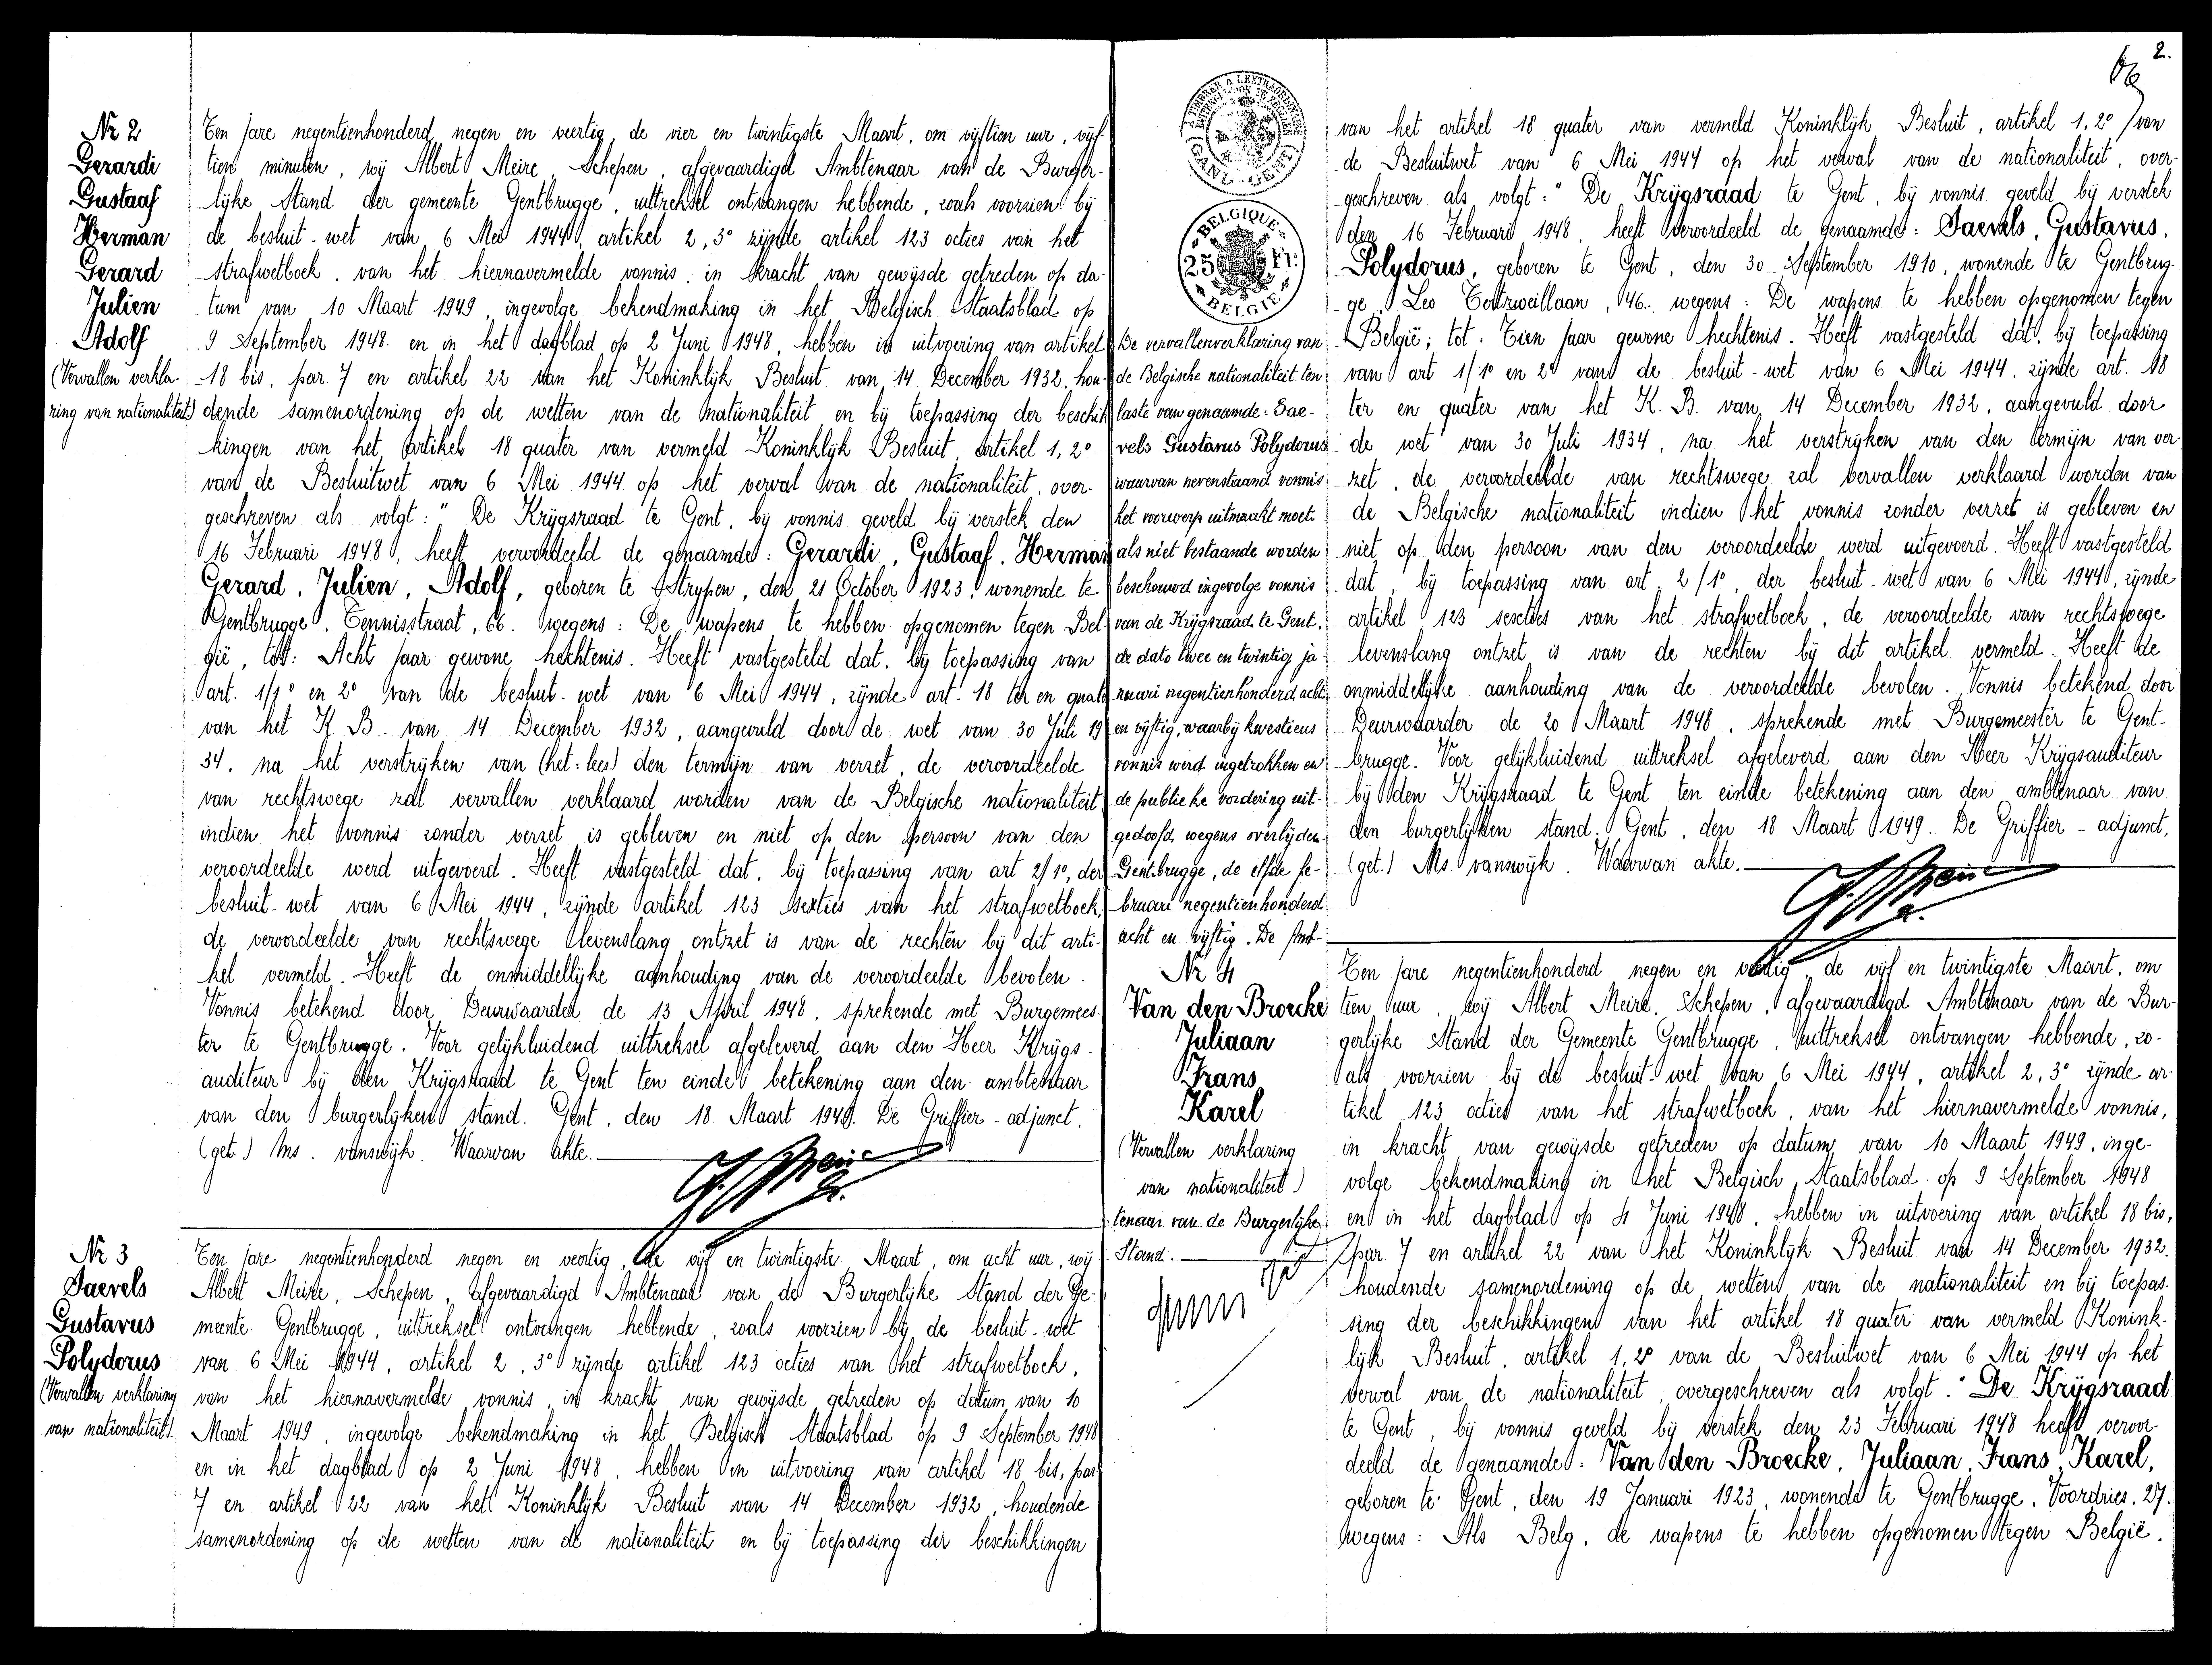 Nr 2
Gerardi
Gustaaf
Herman
Gerard
Julien
Adolf
(Vervallen verkla-
ring van nationaliteit)
Ten jare negentienhonderd negen en veertig, de vier en twintigste Maart, om vijftien uur, vijf-
tien minuten, wij Albert Meire, Schepen, afgevaardigd Ambtenaar van de Burger-
lijke Stand der gemeente Gentbrugge, uittreksel ontvangen hebbende, zoals voorzien bij
de besluit-wet van 6 Mei 1944, artikel 2, 3° zijnde artikel 123 octies van het
strafwetboek, van het hiernavermelde vonnis, in kracht van gewijsde getreden op da-
tum van 10 Maart 1949, ingevolge bekendmaking in het Belgisch Staatsblad op
9 September 1948 en in het dagblad op 2 Juni 1948, hebben in uitvoering van artikel
18 bis, par. 7 en artikel 22 van het Koninklijk Besluit van 14 December 1932, hou-
dende samenordening op de wetten van de nationaliteit en bij toepassing der beschik
kingen van het artikel 18 quater van vermeld Koninklijk Besluit, artikel 1, 2°
van de Besluitwet van 6 Mei 1944 op het verval van de nationaliteit, over-
geschreven als volgt: " De Krijgsraad te Gent, bij vonnis geveld bij verstek den
16 Februari 1948, heeft veroordeeld de genaamde: Gerardi, Gustaaf, Herman
Gerard, Julien, Adolf, geboren te Strypen, den 21 October 1923, wonende te
Gentbrugge, Tennisstraat, 66. wegens: De wapens te hebben opgenomen tegen Bel
gië, tot: Acht jaar gewone hechtenis. Heeft vastgesteld dat, bij toepassing van
art. 1/1° en 2° van de besluit-wet van 6 Mei 1944, zijnde art. 18 ter en quater
van het K. B. van 14 December 1932, aangevuld door de wet van 30 Juli 19
34, na het verstrijken van (het: lees) den termijn van verzet, de veroordeelde
van rechtswege zal vervallen verklaard worden van de Belgische nationaliteit
indien het vonnis zonder verzet is gebleven en niet op den persoon van den
veroordeelde werd uitgevoerd. Heeft vastgesteld dat, bij toepassing van art 2/1°, der
besluit-wet van 6 Mei 1944, zijnde artikel 123 sexties van het strafwetboek,
de veroordeelde van rechtswege levenslang ontzet is van de rechten bij dit arti-
kel vermeld. Heeft de onmiddellijke aanhouding van de veroordeelde bevolen.
Vonnis betekend door Deurwaarder de 13 April 1948, sprekende met Burgemees-
ter te Gentbrugge. Voor gelijkluidend uittreksel afgeleverd aan den Heer Krijgs-
auditeur bij den Krijgsraad te Gent ten einde betekening aan den ambtenaar
van den burgerlijken stand. Gent, den 18 Maart 1949. De Griffier-adjunct,
(get.) Ms. vanswijk. Waarvan akte.
Nr 3
Saevels
Gustavus
Polydorus
(Vervallen verklaring
van nationaliteit)
Ten jare negentienhonderd negen en veertig, de vijf en twintigste Maart, om acht uur, wij
Albert Meire, Schepen, afgevaardigd Ambtenaar van de Burgerlijke Stand der Ge-
meente Gentbrugge, uittreksel ontvangen hebbende, zoals voorzien bij de besluit-wet
van 6 Mei 1944, artikel 2, 3° zijnde artikel 123 octies van het strafwetboek,
van het hiernavermelde vonnis, in kracht van gewijsde getreden op datum van 10
Maart 1949, ingevolge bekendmaking in het Belgisch Staatsblad op 9 September 1948
en in het dagblad op 2 Juni 1948, hebben in uitvoering van artikel 18 bis, par
7 en artikel 22 van het Koninklijk Besluit van 14 December 1932, houdende
samenordening op de wetten van de nationaliteit en bij toepassing der beschikkingen
2.
A TIMBRER A L'EXTRAORDINAIRE
GAND - GENT
BELGIQUE
25 Fr.
BELGIE
van het artikel 18 quater van vermeld Koninklijk Besluit, artikel 1, 2° van
de Besluitwet van 6 Mei 1944 op het verval van de nationaliteit, over-
geschreven als volgt: " De Krijgsraad te Gent, bij vonnis geveld bij verstek
den 16 Februari 1948, heeft veroordeeld de genaamde: Saevels, Gustavus,
Polydorus, geboren te Gent, den 30 September 1910, wonende te Gentbrug-
ge, Leo 46. wegens: De wapens te hebben opgenomen tegen
België; tot: Tien jaar gewone hechtenis. Heeft vastgesteld dat, bij toepassing
van art 1/1° en 2° van de besluit-wet van 6 Mei 1944, zijnde art. 18
ter en quater van het K. B. van 14 December 1932, aangevuld door
de wet van 30 Juli 1934, na het verstrijken van den termijn van ver-
zet, de veroordeelde van rechtswege zal vervallen verklaard worden van
de Belgische nationaliteit indien het vonnis zonder verzet is gebleven en
niet op den persoon van den veroordeelde werd uitgevoerd. Heeft vastgesteld
dat, bij toepassing van art. 2/1°, der besluit-wet van 6 Mei 1944, zijnde
artikel 123 sexcties van het strafwetboek, de veroordeelde van rechtswege
levenslang ontzet is van de rechten bij dit artikel vermeld. Heeft de
onmiddellijke aanhouding van de veroordeelde bevolen. Vonnis betekend door
Deurwaarder de 20 Maart 1948, sprekende met Burgemeester te Gent-
brugge. Voor gelijkluidend uittreksel afgeleverd aan den Heer Krijgsauditeur
bij den Krijgsraad te Gent ten einde betekening aan den ambtenaar van
den burgerlijken stand. Gent, den 18 Maart 1949. De Griffier-adjunct,
(get.) Ms. vanswijk. Waarvan akte.
De vervallenverklaring van
de Belgische nationaliteit ten
laste van genaamde: Sae-
vels Gustavus Polydorus
waarvan nevenstaand vonnis
het voorwerp uitmaakt moet
als niet bestaande worden
beschouwd ingevolge vonnis
van de Krijgsraad te Gent,
de dato twee en twintig ja-
nuari negentienhonderd acht
en vijftig, waarbij kwestieus
vonnis werd ingetrokken en
de publieke vordering uit-
gedoofd wegens overlijden.
Gentbrugge, de elfde fe-
bruari negentienhonderd
acht en vijftig. De Amb-
tenaar van de Burgerlijke
Stand.
Nr 4
Van den Broecke
Juliaan
Frans
Karel
(Vervallen verklaring
van nationaliteit)
Ten jare negentienhonderd negen en veertig, de vijf en twintigste Maart, om
tien uur, wij Albert Meire, Schepen, afgevaardigd Ambtenaar van de Bur-
gerlijke Stand der Gemeente Gentbrugge, uittreksel ontvangen hebbende, zo-
als voorzien bij de besluit-wet van 6 Mei 1944, artikel 2, 3° zijnde ar-
tikel 123 octies van het strafwetboek, van het hiernavermelde vonnis,
in kracht van gewijsde getreden op datum van 10 Maart 1949, inge-
volge bekendmaking in het Belgisch Staatsblad op 9 September 1948
en in het dagblad op 4 Juni 1948, hebben in uitvoering van artikel 18 bis,
par. 7 en artikel 22 van het Koninklijk Besluit van 14 December 1932,
houdende samenordening op de wetten van de nationaliteit en bij toepas-
sing der beschikkingen van het artikel 18 quater van vermeld Konink-
lijk Besluit, artikel 1, 2° van de Besluitwet van 6 Mei 1944 op het
verval van de nationaliteit, overgeschreven als volgt: " De Krijgsraad
te Gent, bij vonnis geveld bij verstek den 23 Februari 1948 heeft veroor-
deeld de genaamde: Van den Broecke, Juliaan, Frans, Karel,
geboren te Gent, den 19 Januari 1923, wonende te Gentbrugge, Voordries, 27.
wegens: Als Belg, de wapens te hebben opgenomen tegen België.